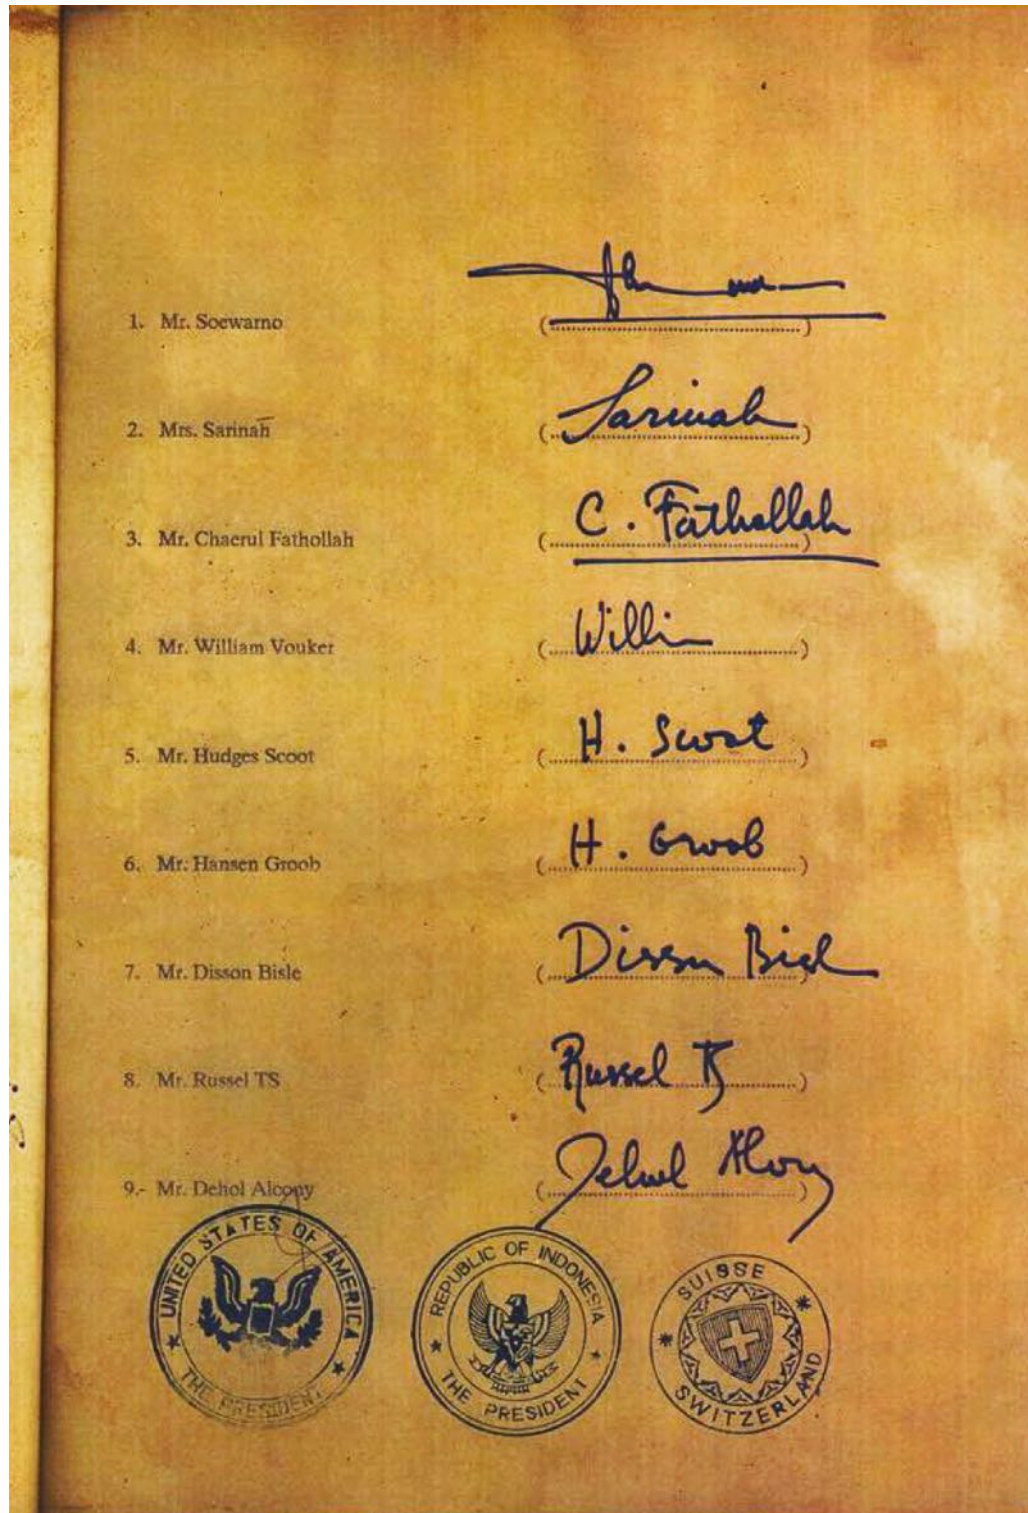 1. Mr. Soewarno (....................)
2. Mrs. Sarinah (Sarinah)
3. Mr. Chaerul Fathollah (C. Fathollah)
4. Mr. William Vouker (Willi)
5. Mr. Hudges Scoot (H. Scoot)
6. Mr. Hansen Groob (H. Groob)
7. Mr. Disson Bisle (Disson Bisl)
8. Mr. Russel TS (Russel TS)
9.- Mr. Dehol Alcony (....................)
UNITED STATES OF AMERICA
THE PRESIDENT
REPUBLIC OF INDONESIA
THE PRESIDENT
SUISSE
SWITZERLAND